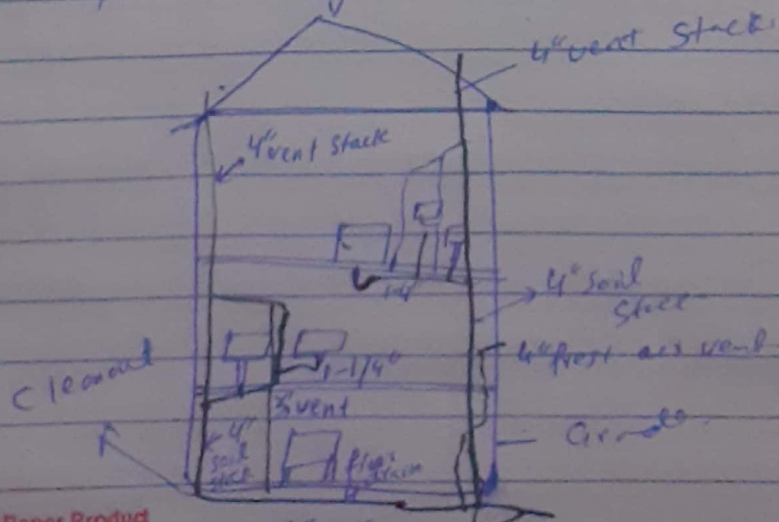 4" vent Stack
4" vent Stack
4" Soil
Stack
4" fresh air vent
1-1/4"
Cleanout
3" vent
4"
Soil
Stack
floor
drain
Paper Product